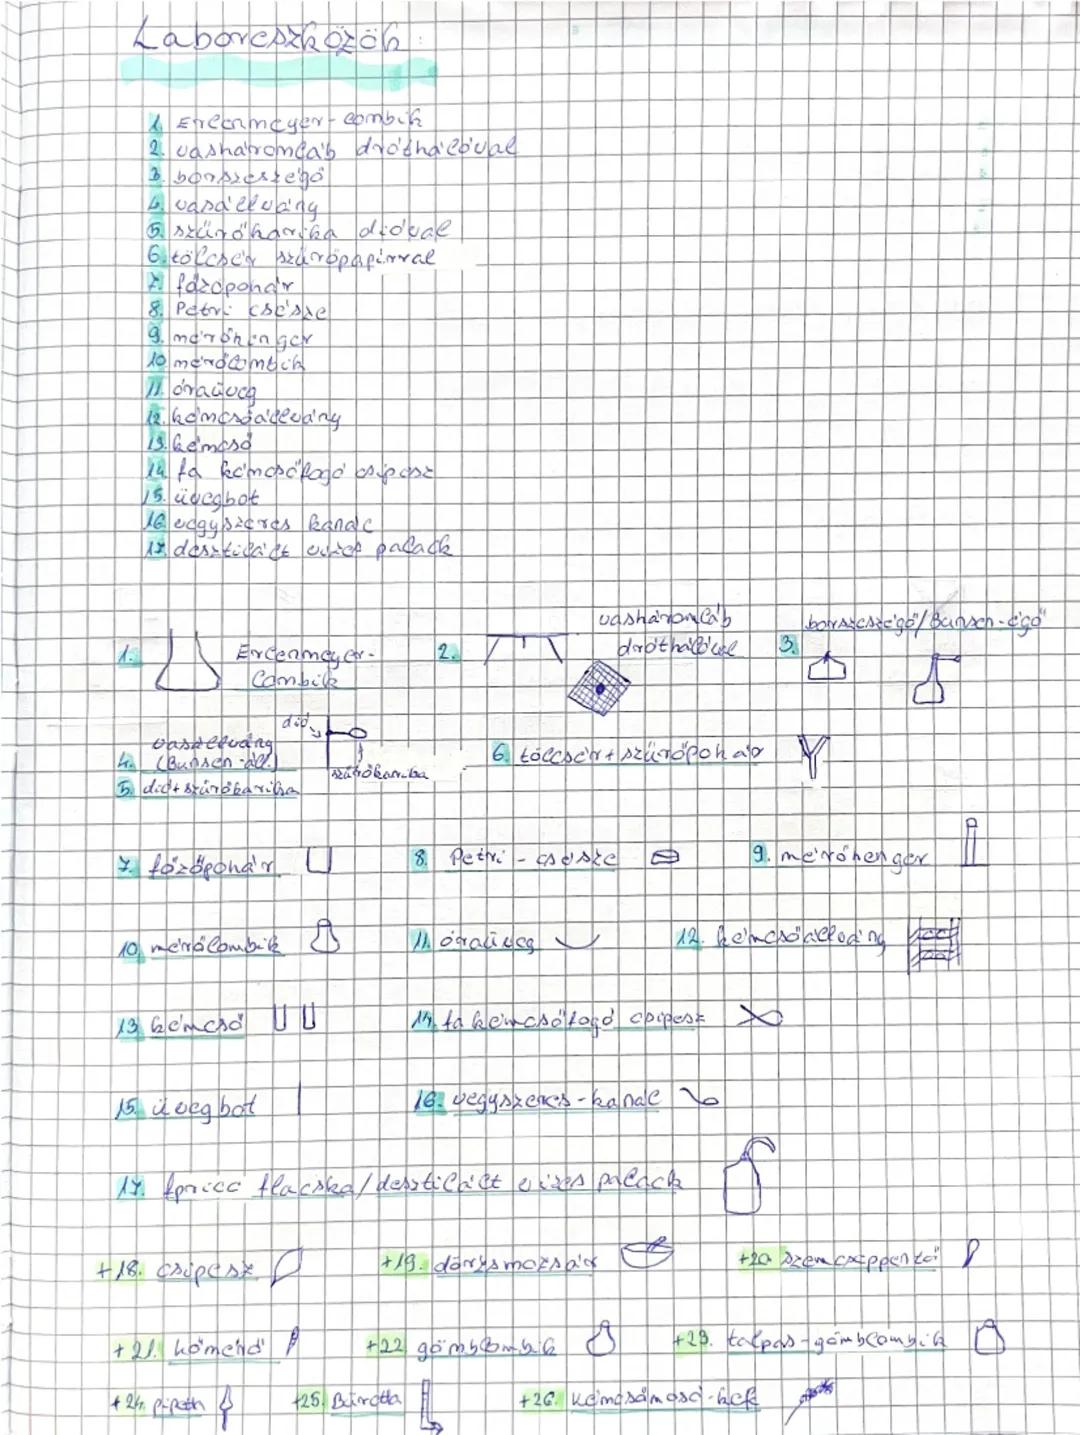 Laboreszközök:
1. Erlenmeyer-lombik
2. vasháromláb dróthálóval
3. borszeszégő
4. vasállvány
5. szűrőkarika dióval
6. tölcsér szűrőpapírral
7. főzőpohár
8. Petri csésze
9. mérőhenger
10 mérőlombik
11. óraüveg
12. kémcsőállvány
13. kémcső
14 fa kémcsőfogó csipesz
15. üvegbot
16 vegyszeres kanál
17. desztilált vizes palack
1. Erlenmeyer-lombik
2. vasháromláb dróthálóval
3. borszeszégő/Bunsen-égő
4. vasállvány (Bunsen-áll.)
5. dió+szűrőkarika
dió
szűrőkarika
6. tölcsér+szűrőpohár
7. főzőpohár
8. Petri-csésze
9. mérőhenger
10. mérőlombik
11. óraüveg
12. kémcsőállvány
13. kémcső
14. fa kémcsőfogó csipesz
15. üvegbot
16. vegyszeres-kanál
17. spricc flacska/desztilált vizes palack
+18. csipesz
+19. dörzsmozsár
+20. szemcseppentő
+21. hőmérő
+22 gömblombik
+23. talpas-gömblombik
+24. pipetta
+25. Büretta
+26. kémcsőmosó-kefe